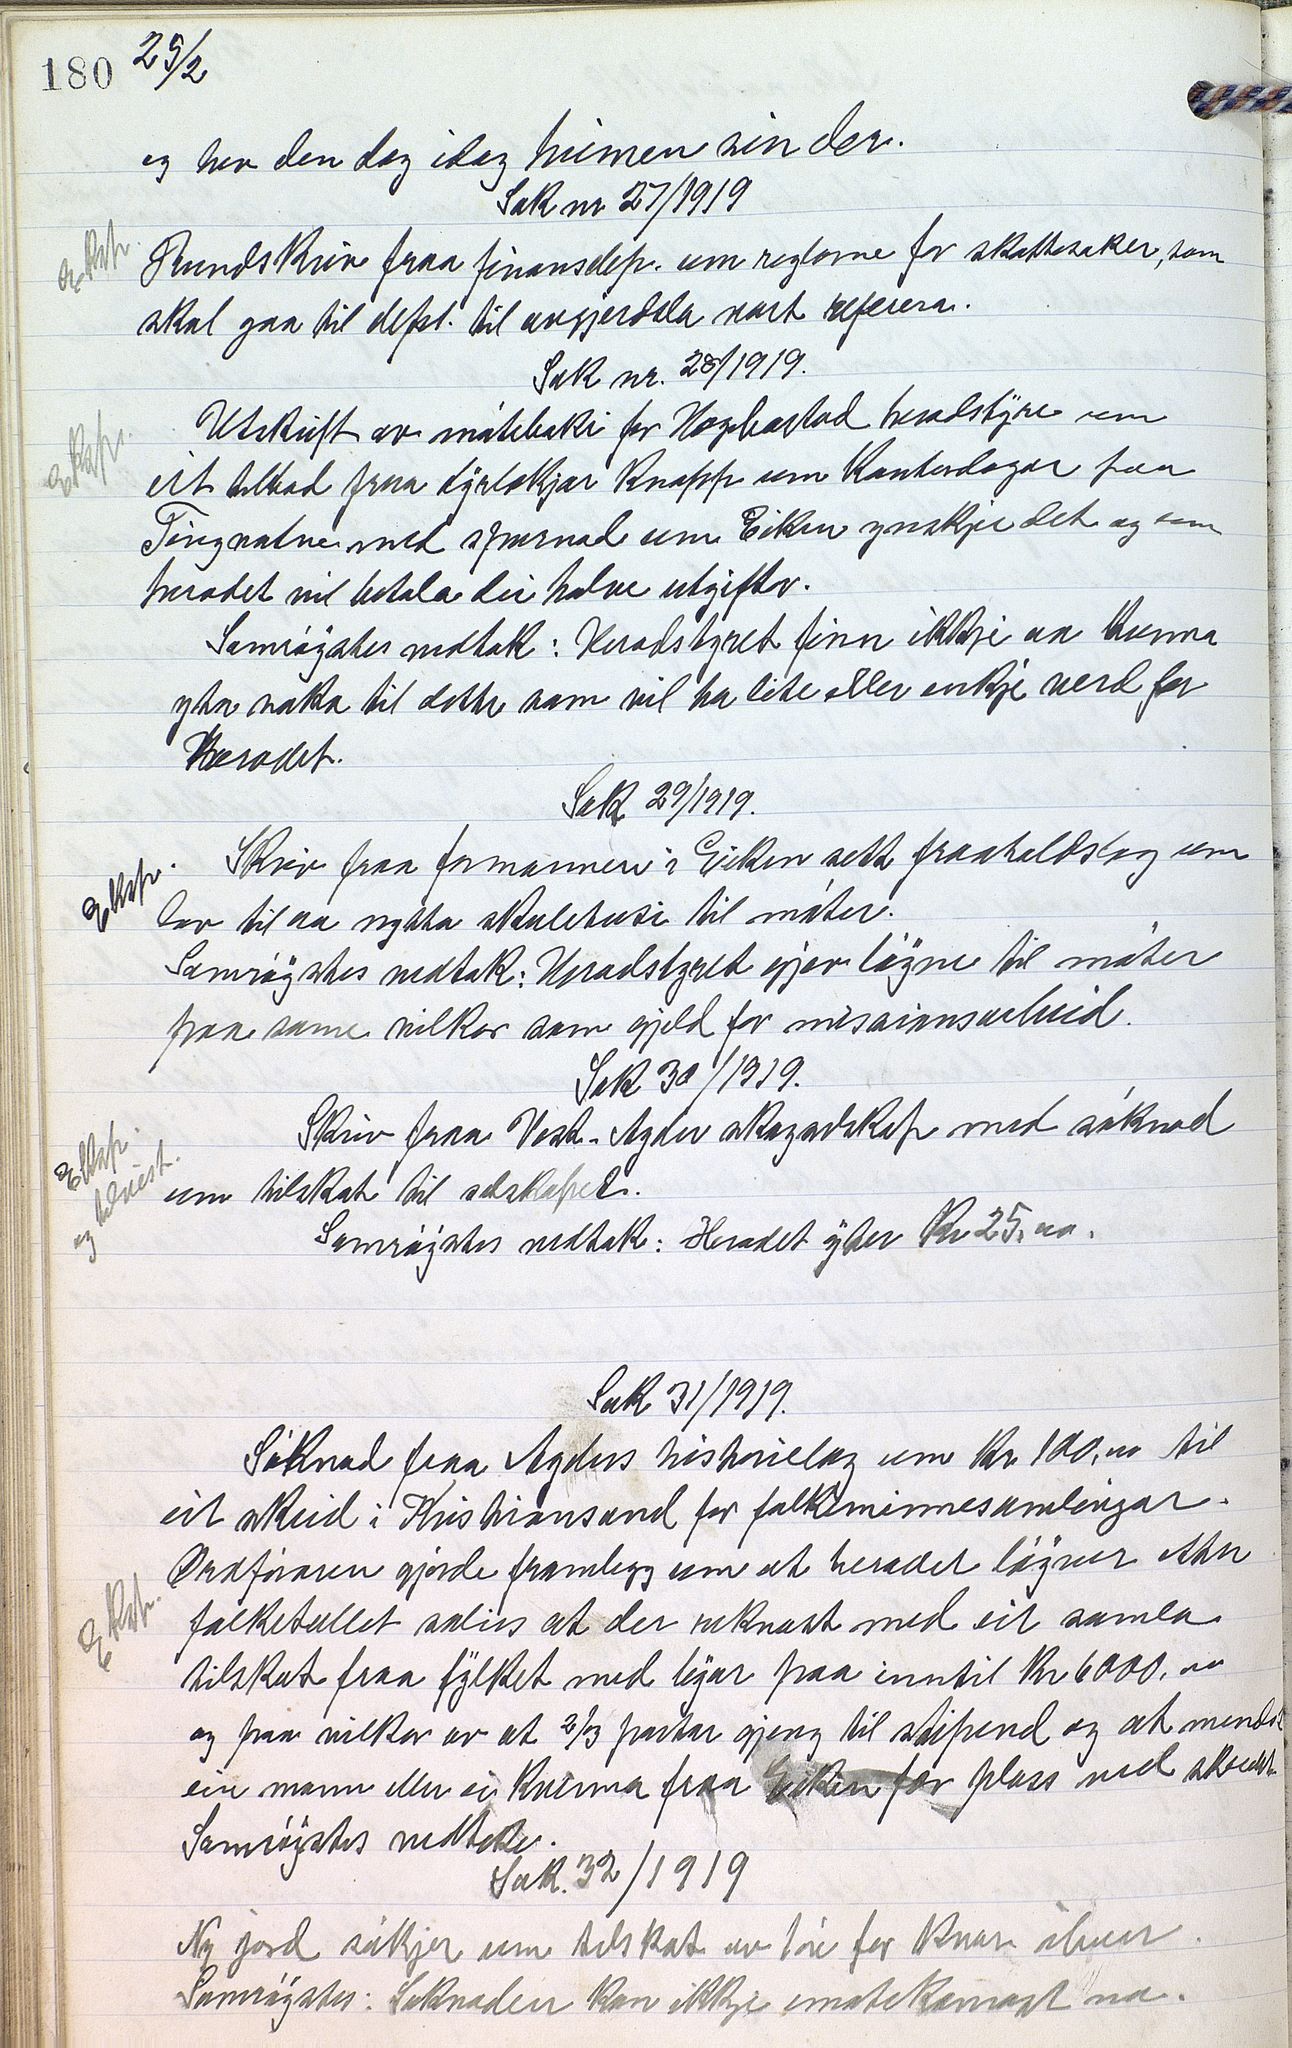 180 25/2
og hev den dag idag heimen sin der.
Sak nr 27/1919
Eksp.
Rundskriv fraa finansdep. um reglorne for skattesaker, som
skal gaa til depst. til avgjerdsla vart referera.
Sak nr. 28/1919.
Ekspr.
Utskrift av möteboki for Hægebostad heradstyre um
eit tilbod fraa dyrlækjar Knapp um Kontordagar paa
Tingvatne med spurnad um Eiken ynskje det og um
heradet vil betala dei halve utgifter.
Samröystes vedtak: Heradstyret finn ikkje aa kunna
yta noko til dette som vil ha lite eller inkje verd for
Heradet.
Sak 29/1919.
Ekspr.
Skriv fraa formannen i Eiken sett fraahaldslag um
lov til aa nytta skulehusi til möter.
Samröystes vedtak: Heradstyret gjev löyve til möter
paa same vilkor som gjeld for missionsarbeid.
Sak 30/1919.
Ekspr.
og tilvist.
Skriv fraa Vest-Agder skogselskap med söknad
um tilskot til selskapet.
Samröystes vedtak: Heradet yter Kr 25,00.
Sak 31/1919.
Söknad fraa Agders historielag um Kr. 100,00 til
eit skeid i Kristiansand for folkeminnesamlingar.
Ekspr.
Ordföraren gjorde framlegg um at heradet löyver etter
folketallet soleis at der reknast med eit samla
tilskot fraa fylket med byar paa inntil Kr 6000,00
og paa vilkor av at 2/3 partar gjeng til stipend og at minst
ein mann eller ei kvinna fraa Eiken faar plass ved skeidet.
Samröystes vedteke.
Sak. 32/1919
Ny jord sökjer um tilskot av 1 öre for kvar ibuar.
Samröystes: Söknaden kan ikkje imötekomast no.